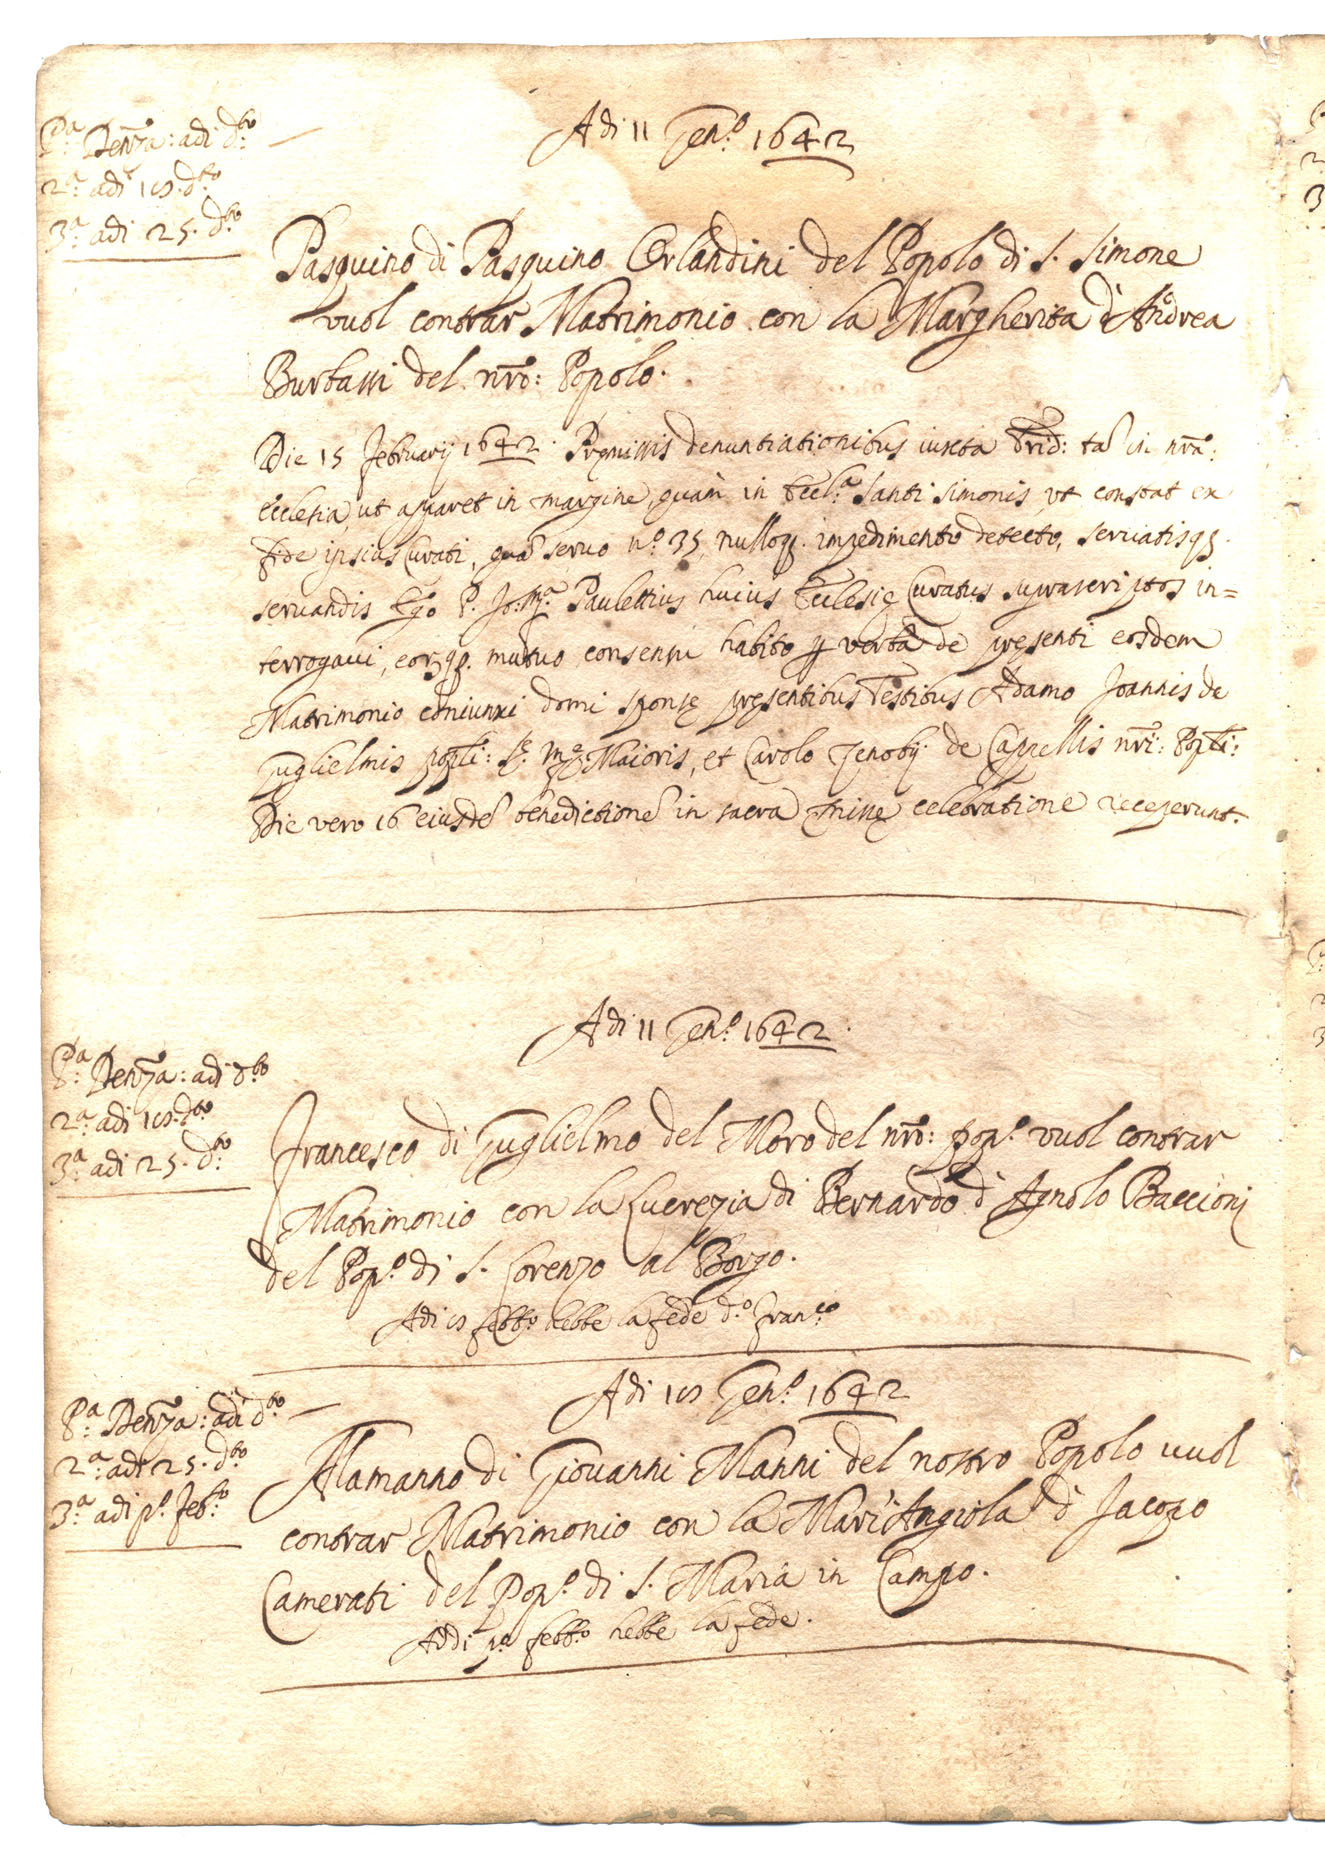 Adi 11 Gen.º 1642
P.ª Denz.ª: adi d.º
2.ª adi 19. d.º
3.ª adi 25. d.º
Pasquino di Pasquino Orlandini del Popolo di S. Simone
vuol contrar Matrimonio con la Margherita d'Andrea
Burbassi del nr̃o: Popolo.
Die 15 Februarij 1642. Pręmissis denuntiationibus iuxta Trid: tã in nrã:
Ecclesia, ut apparet in margine, quàm in Eccl.ª Santi Simonis ut constat ex
fide ipsius Curati, quã servo nº 35, nulloq. impedimento detecto, servatisq.
servandis Ego P. Jo: Mª. Paulettius huius Ecclesię Curatus suprascriptos in=
terrogavi, eorq. mutuo consensu habito p verba de presenti eosdem
Matrimonio coniunxi domi sponsę presentibus Testibus Adamo Joannis de
Guglielmis popli: S. Mę Maioris, et Carolo Zenobij de Cappellis nr̃i: Popli:
Die vero 16 eiusdẽ benedictionẽ in sacra missę celebratione receperunt.
Adi 11 Gen.º 1642.
P.ª Denz.ª: adi d.º
2.ª adi 19. d.º
3.ª adi 25. d.º
Francesco di Guglielmo del Moro del nr̃o: pop.º vuol contrar
Matrimonio con la Lucrezia di Bernardo d'Agnolo Baccioni
del Pop.º di S. Lorenzo al Borgo.
Adi 9 febb.º hebbe la fede d.º Fran.co
Adi 19 Gen.º 1642
P.ª Denz.ª: adi d.º
2.ª adi 25. d.º
3.ª adi p.º Feb.º
Alamanno di Giovanni Manni del nostro Popolo vuol
contrar Matrimonio con la Mari'Angiola d'Jacopo
Camerati del Pop.º di S. Maria in Campo.
Addi p.º febb.º hebbe la fede.